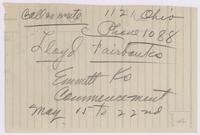 Call or write 1121 Ohio
Phone 1088
Lloyd Fairbanks
Emmett Ko
Commencement
May 15 to 22nd